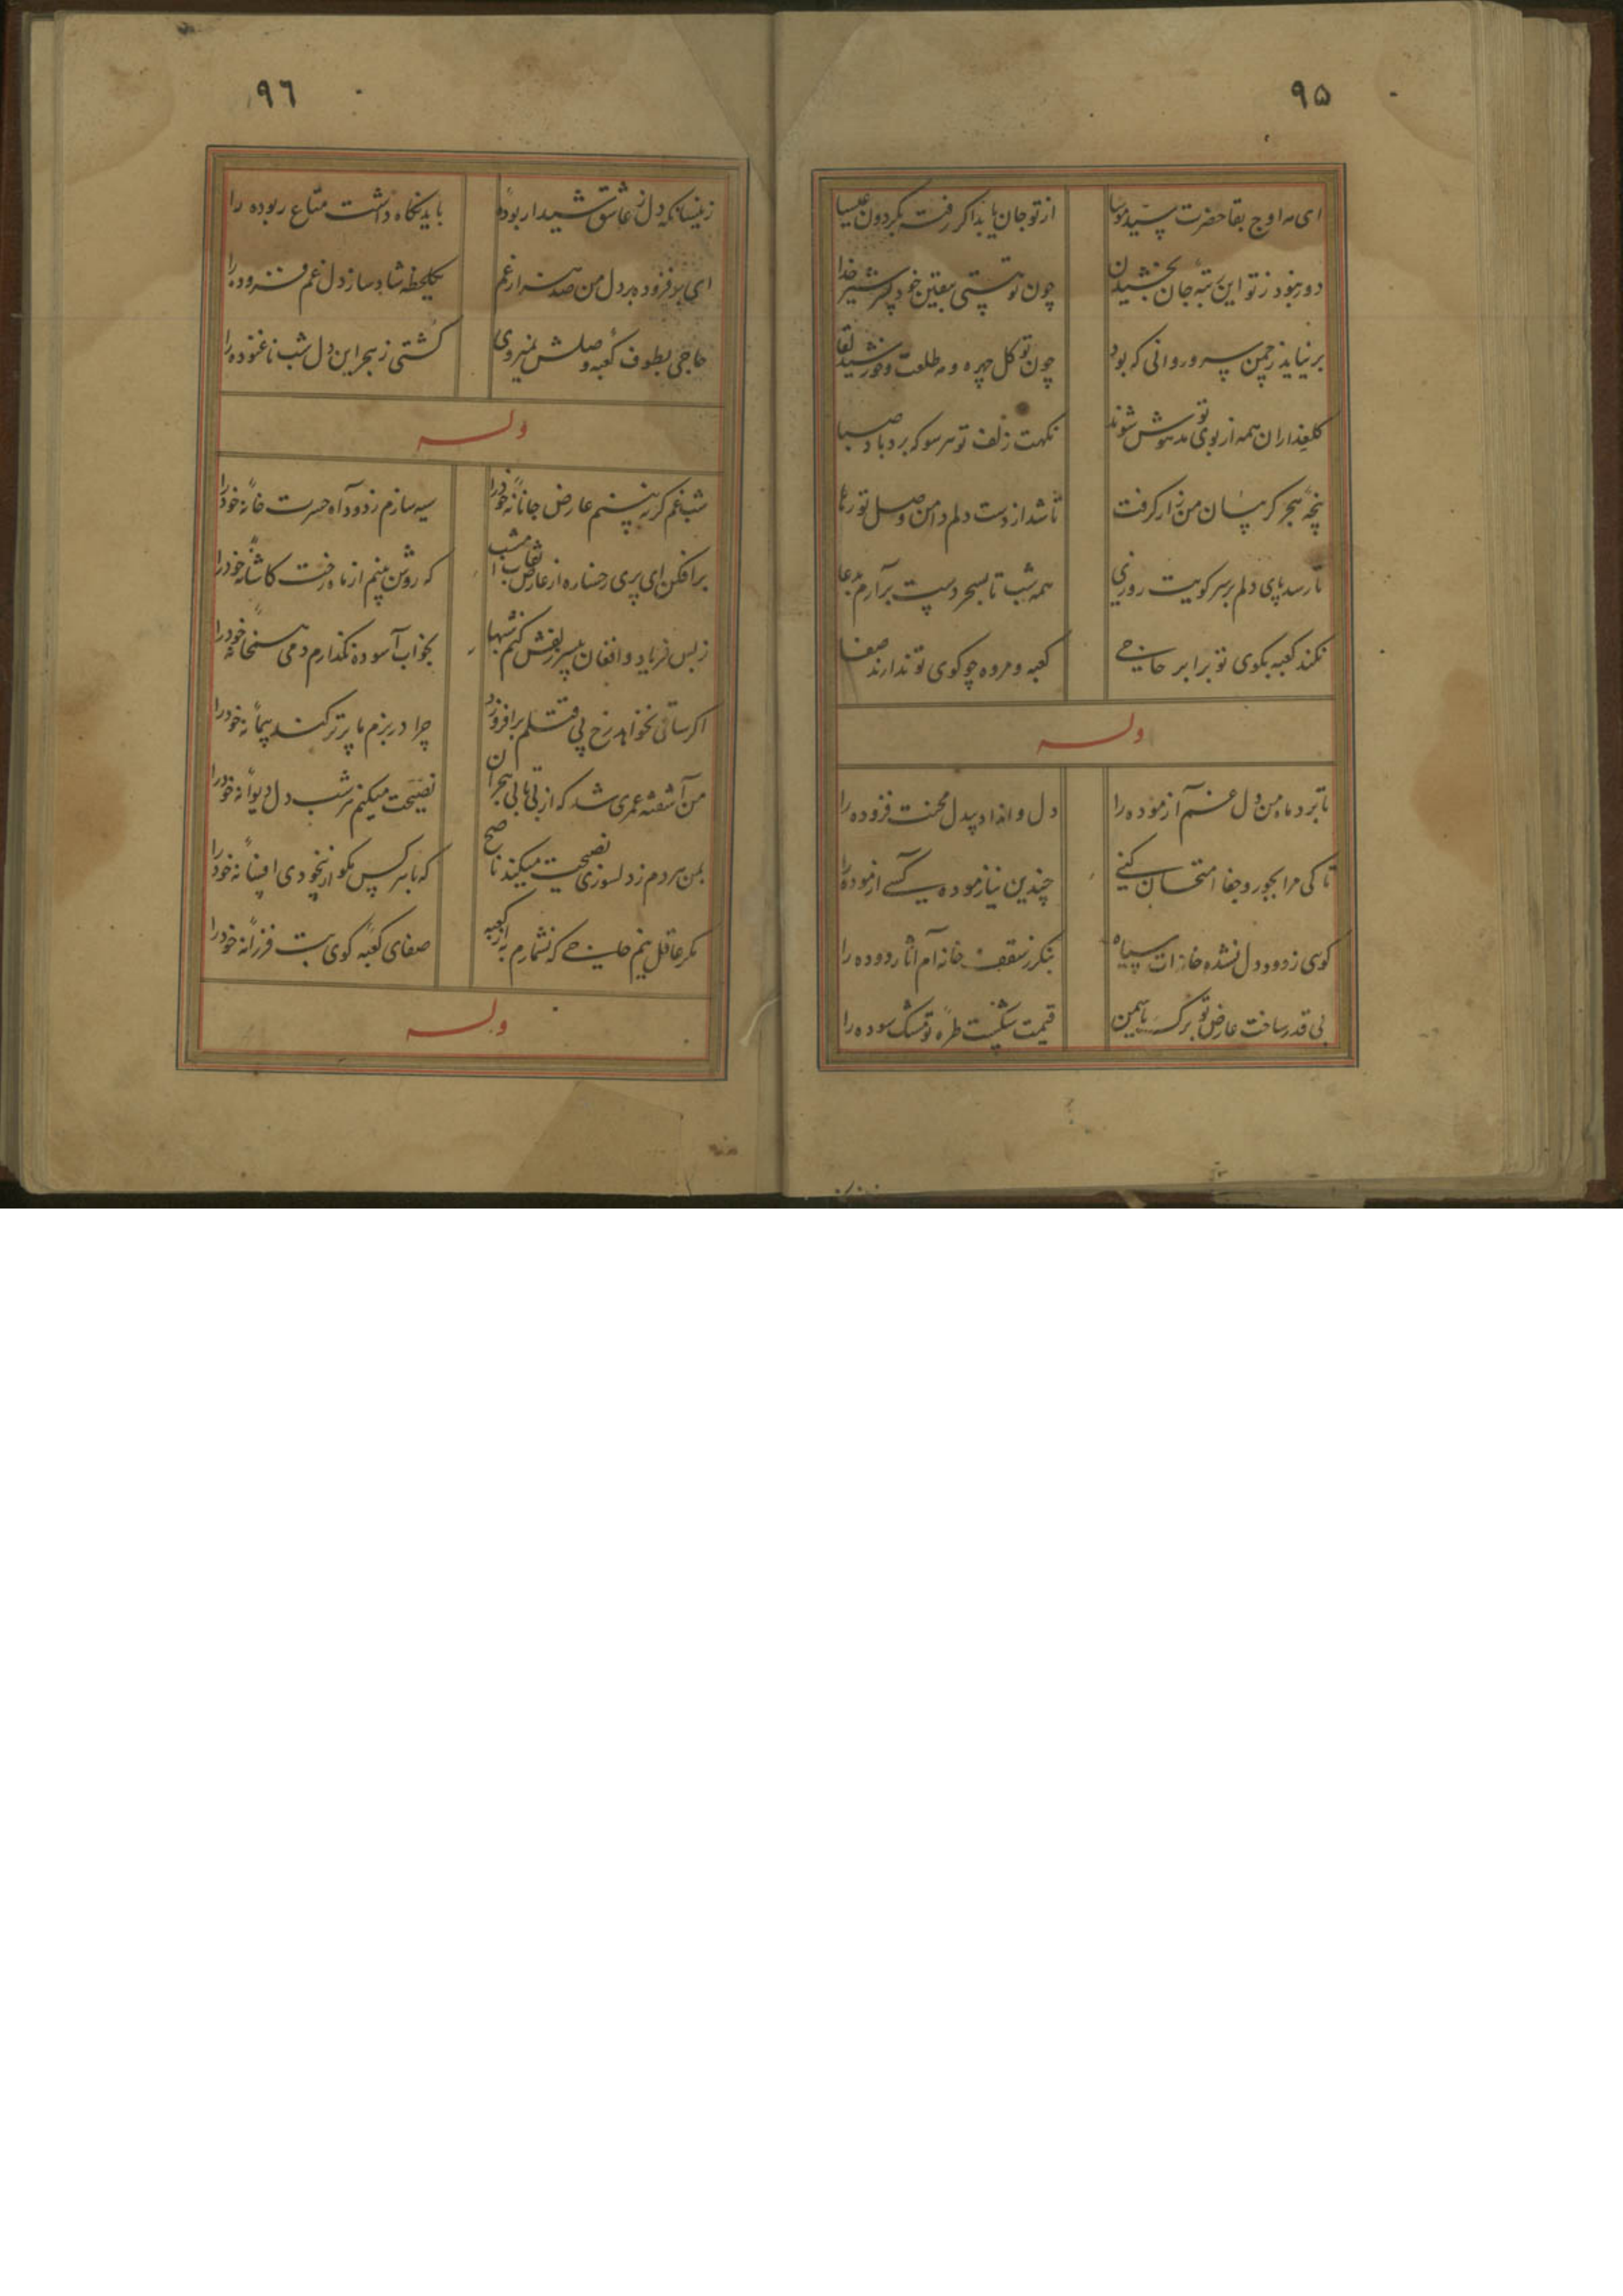 ۹۵
ای مه اوج بقا حضرت سید موسا
از تو جان یابد اکر رفت بکردون عیسا
دور نبود ز تو این رتبهٔ جان بخشیدن
چون تو هستی بیقین خود پسر شیر خدا
بر نیاید ز چمن سرو روانی که بود
چون تو کل چهره و مه طلعت و خورشید لقا
کلعذاران همه از بوی تو مدهوش شوند
نکهت زلف تو هر سو که برد باد صبا
پنجهٔ هجر کریبان من زار کرفت
تا شد از دست دلم دامن وصل تو رها
تا رسد پای دلم بر سر کویت روزی
همه شب تا بسحر دست برآرم بدعا
نکند کعبه بکوی تو برابر حاجی
کعبه و مروه چو کوی تو ندارند صفا
وله
تا برد ماه من دل غم آزموده را
دل وانداد بیدل محنت فزوده را
تا کی مرا بجور و جفا امتحان کنی
چندین نیازموده کسی ازموده را
کوئی ز دود دل نشده خانه ات سیاه
بنکر ز سقف خانه ام آثار دوده را
بی قدر ساخت عارض تو برک یاسمین
قیمت شکست طرهٔ تو مشک سوده را
۹٦
زینسانکه دل ز عاشق شیدا ربودهٔ
باید نکاه داشت متاع ربوده را
ای بر فزوده بر دل من صد هزار غم
یکلحظه شاد ساز دل غم فزوده را
حاجی بطوف کعبهٔ وصلش نمیروی
کشتی ز هجر این دل شب ناغنوده را
وله
شب غم کر نه بینم عارض جانانهٔ خود را
سیه سازم ز دود آه حسرت خانهٔ خود را
برافکن ای پری رخساره از عارض نقاب امشب
که روشن بینم از ماه رخت کاشانهٔ خود را
ز بس فریاد و افغان بی سر زلفش کنم شبها
بخواب آسوده نکذارم دمی همخانهٔ خود را
اکر ساقی نخواهد رخ پی قتلم برافروزد
چرا در بزم ما پرتر کند پیمانهٔ خود را
من آشفته عمری شد که از بی تابی هجران
نصیحت میکنم هر شب دل دیوانهٔ خود را
بمن هر دم ز دلسوزی نصیحت میکند ناصح
که با هر کس مکو از بیخودی افسانهٔ خود را
مکر عاقل نیم حاجی که نشمارم به از کعبه
صفای کعبهٔ کوی بت فرزانهٔ خود را
وله